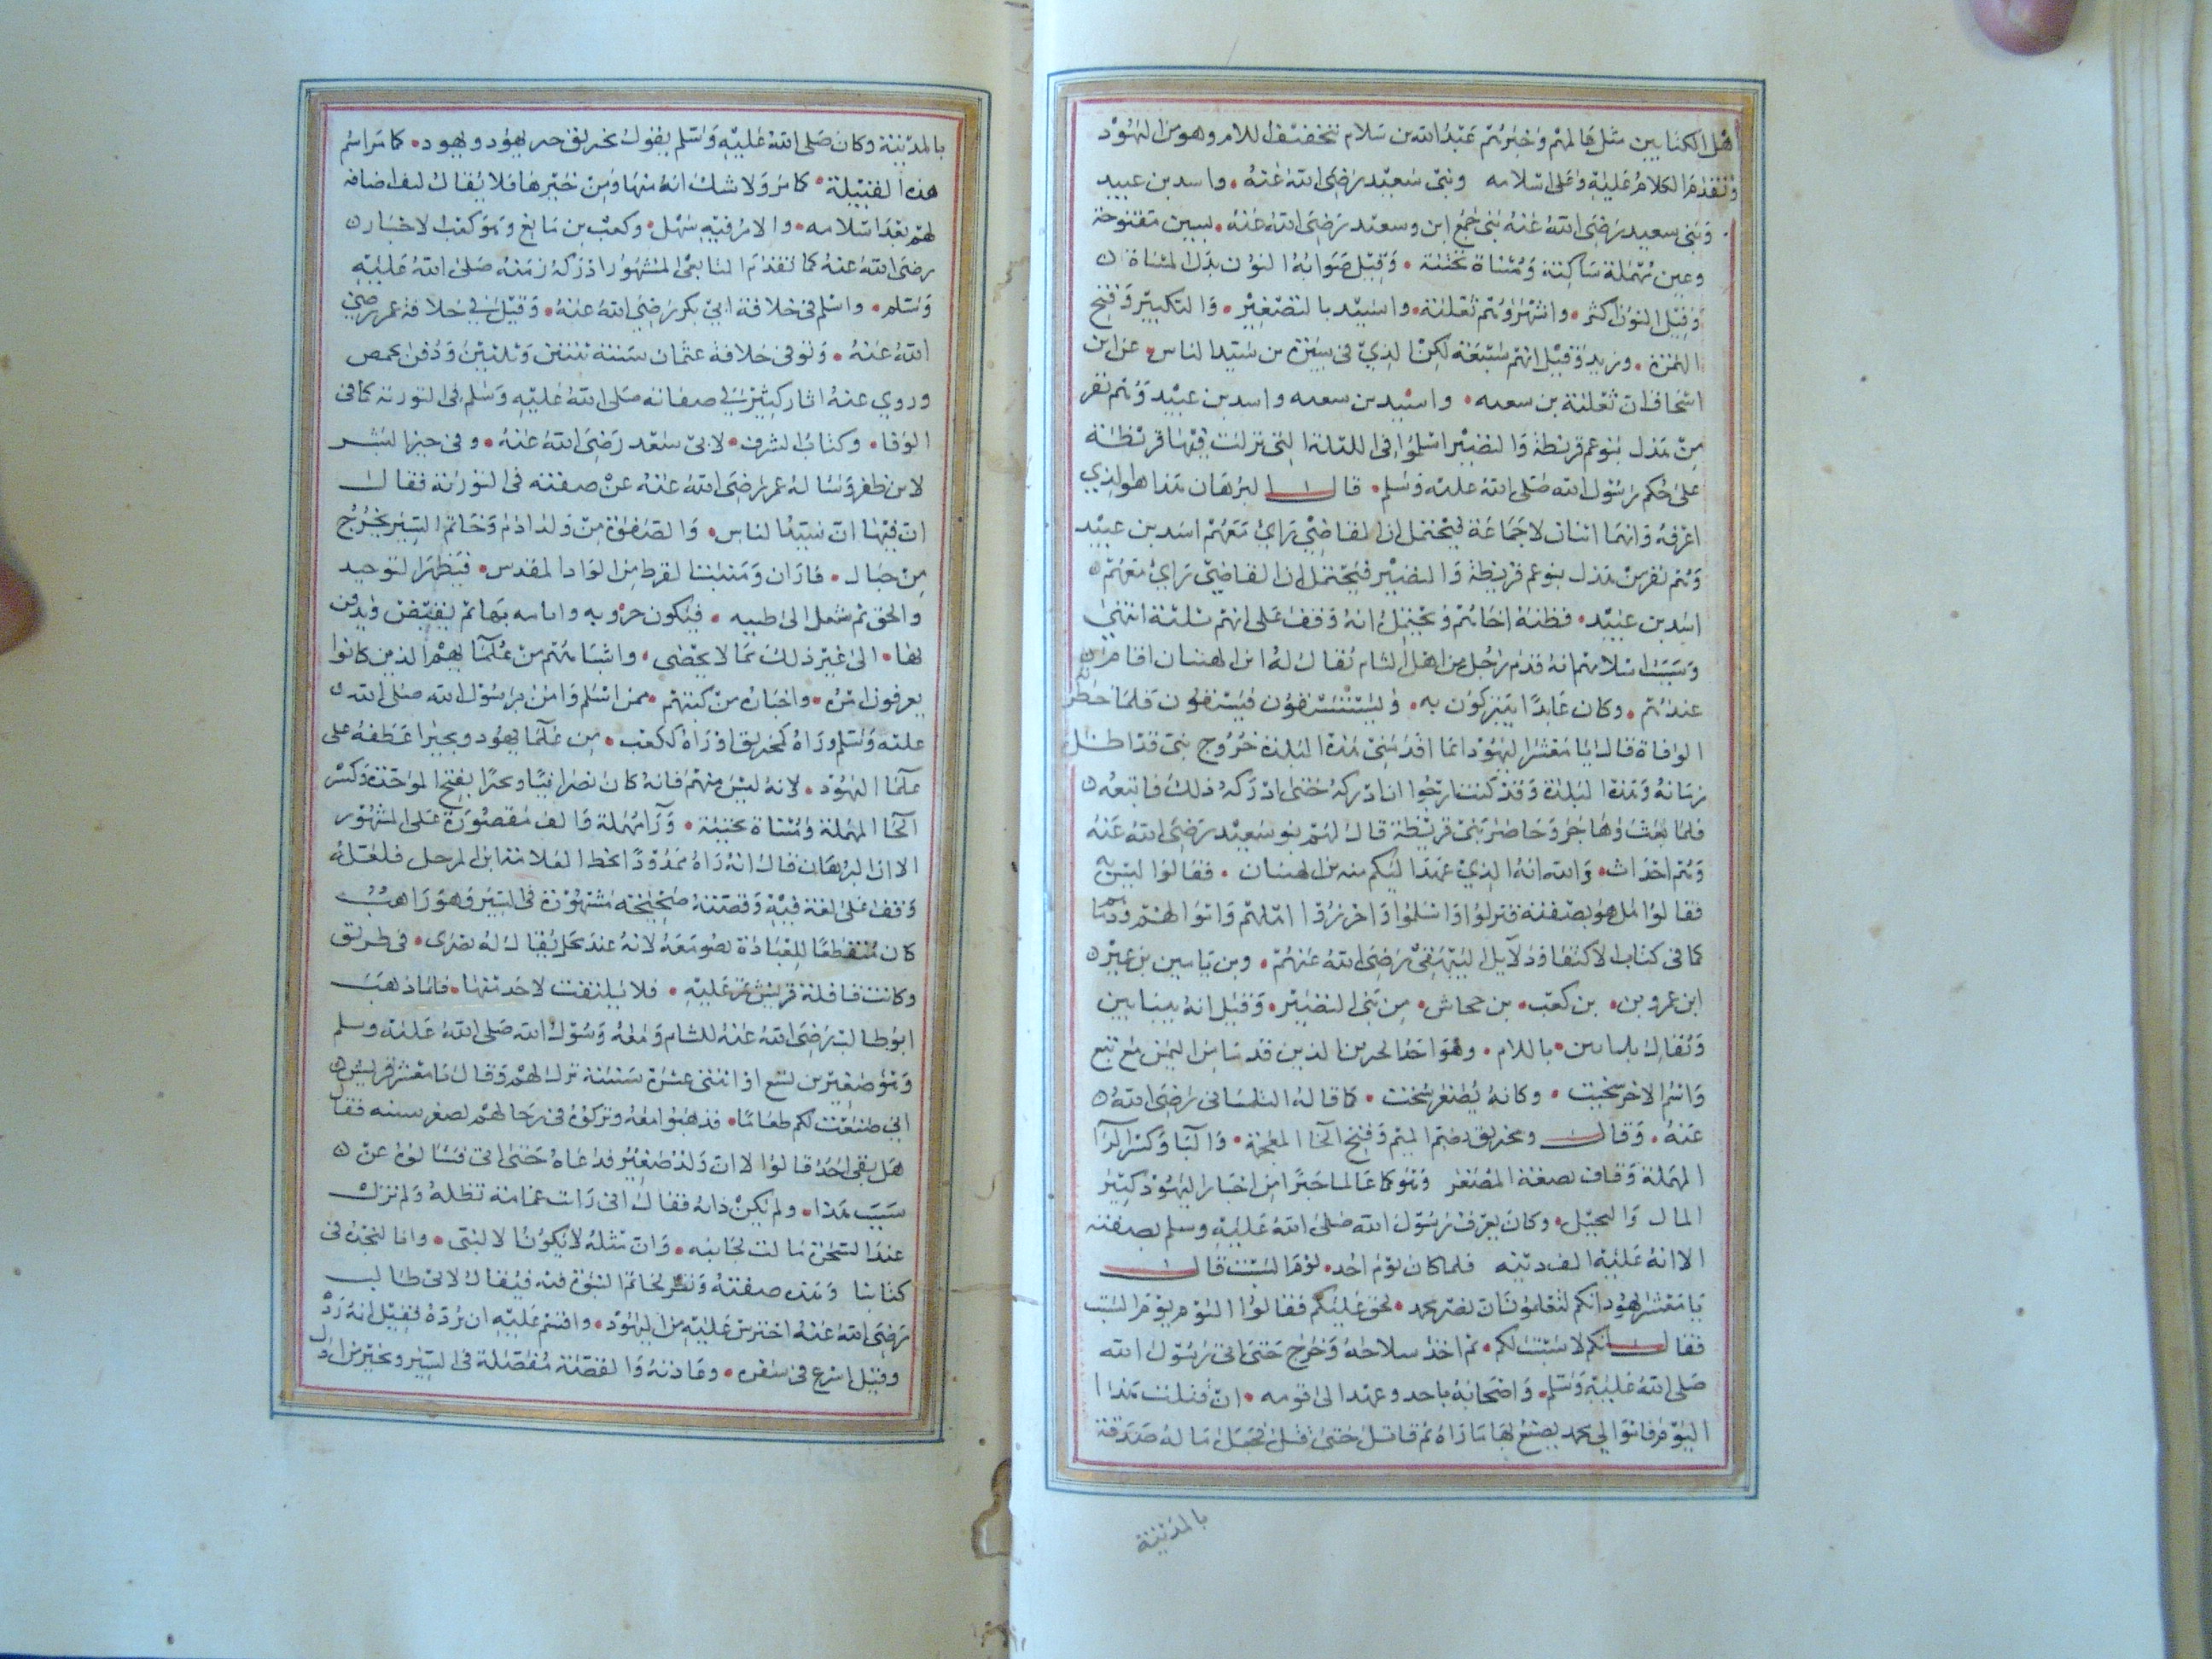 اهل الكتابين مثل عالمهم وخبرهم عبد الله بن سلام بتخفيف اللام وهو من اليهود
وتقدم الكلام عليه وعلى اسلامه وبني سعيد رضي الله عنه • واسد بن عبيد
وبني سعيد رضي الله عنه بني جمع ابن وسعيد رضي الله عنه • بسين مفتوحة
وعين مهملة ساكنة ومثناة تحتية • وقيل صوابه النون بدل المثناة
وقيل النون اكثر • واشهر وهم ثعلبة • واسيد بالتصغير • والتكبير وفتح
الهمزة • وزيد وقيل انهم سبعة لكن الذي في سيرة بن سيد الناس • عن ابن
اسحاق ان ثعلبة بن سعيه • واسيد بن سعيه واسد بن عبيد وهم نفر
من هذل بنو عم قريظة والنضير اسلموا في الليلة التي نزلت فيها قريظة
على حكم رسول الله صلى الله عليه وسلم • قال البرهان هذا هو الذي
اعرفه وانهما اثنان لا جماعة فيحتمل ان القاضي رأي معهم اسد بن عبيد
وهم نفر من هذل بنو عم قريظة والنضير فيحتمل ان القاضي رأي معهم
اسد بن عبيد • فظنه اخاهم ويحتمل انه وقف على انهم ثلثة انتهى
وسبب اسلامهم انه قدم رجل من اهل الشام يقال له ابن الهيبان اقام
عندهم • وكان عابدا يتبركون به • ويستسقون فيسقون فلما حضرته
الوفاة قال يا معشر اليهود انما اقدمني هذه البلدة خروج نبي قد اظل
زمانه وهذه البلدة وقد كنت ارجوا ان ادركه حتى ادركه ذلك فاتبعوه
فلما بعث وهاجر وحاصر بني قريظة قال لهم بنو سعيد رضي الله عنه
وهم احداث • والله انه الذي عهد اليكم منه بن الهيبان • فقالوا ليس
فقالوا بل هو بصفته فنزلوا واسلموا واحرزوا اهلهم واموالهم ودمآ
كما في كتاب الاكتفا ودلآيل البيهقي رضي الله عنهم • وبن يامين بن عمير
ابن عمرو بن • بن كعب • بن جحاش • من بني النضير • وقيل انه بيبابين
ويقال بلبابين • باللام • وهو احد الحبرين الذين قدما من اليمن مع تبع
واسم الاخر سخيت • وكانه يصغر سخت • كما قاله التلمساني رضي الله
عنه • وقال ومخريق بضم الميم وفتح الخا المعجمة • واليا وكسر الرآ
المهملة وقاف بصيغة المصغر وهو كا عالما حبرا من احبار اليهود كثير
المال والنخيل • وكان يعرف رسول الله صلى الله عليه وسلم بصفته
الا انه غلبه الف دينه فلما كان يوم احد • يوم السبت قال
يا معشر يهود انكم لتعلمون ان نصر محمد • لحق عليكم فقالوا اليوم يوم السبت
فقال انكم لا سبت لكم • ثم اخذ سلاحه وخرج حتى اتى رسول الله
صلى الله عليه وسلم • واصحابه باحد وعهد الى قومه • ان قتلت هذا
اليوم فاموالي لمحمد يصنع بها ما راه ثم قاتل حتى قتل فجعل ماله صدقة
بالمدينة
بالمدينة وكان صلى الله عليه وسلم يقول مخريق خير يهود ويهود • كما مر اسم
هذه القبيلة • كما مر ولا شك انه منها ومن خيرها فلا يقال كيف اضافه
لهم بعد اسلامه • والامر فيه سهل • وكعب بن مايع وهو كعب الاحبار
رضي الله عنه كما تقدم التابعي المشهور ادرك زمنه صلى الله عليه
وسلم • واسلم في خلافة ابي بكر رضي الله عنه • وقيل في خلافة عمر رضي
الله عنه • وتوفي خلافة عثمان سنة ثنتين وثلثين ودفن بحمص
وروي عنه اثار كثير في صفاته صلى الله عليه وسلم في التورية كما في
الوفا • وكتاب الشرف • لابي سعد رضي الله عنه • وفي خير البشر
لابن ظفر وساله عمر رضي الله عنه عن صفته في التورية فقال
ان فيها ان سيد الناس • والصفوة من ولد ادم وخاتم النبيين يخرج
من جبال • فاران ومنبت القرظ من الواد المقدس • فيظهر التوحيد
والحق ثم ينتقل الى طيبه • فيكون حروبه وايامه بها ثم يقبض ويدفن
بها • الى غير ذلك مما لا يحصى • واشباههم من علمآ يهم الذين كانوا
يعرفون امره • واخباره من كتبهم • ممن اسلم وامن برسول الله صلى الله
عليه وسلم وراه كمخريق او راه ككعب • من علمآ يهود وبحيرا عطفه على
علمآ اليهود • لانه ليس منهم فانه كان نصرانيا وبحيرا بفتح الموحدة وكسر
الحآ المهملة ومثناة تحتية • ورآ مهملة والف مقصورة على المشهور
الا ان البرهان قال انه راه ممدودا بخط العلامة ابن المرحل فلعله
وقف على لغة فيه وقصته صحيحة مشهورة في السير وهو راهب
كان منقطعا للعبادة بصومعة لانه عند محل يقال له بصرى • في طريق
وكانت قافلة قريش تمر عليه • فلا يلتفت لاحد منها • فلما ذهب
ابو طالب رضي الله عنه للشام ومعه رسول الله صلى الله عليه وسلم
وهو صغير بن تسع او اثنتى عشرة سنة ترك لهم وقال يا معشر قريش
اني صنعت لكم طعاما • فذهبوا معه وتركوه في رحالهم لصغر سنه فقال
هل بقي احد قالوا لا ان ولد صغير فدعاه حتى اتى فسالوه عن
سبب هذا • ولم يكن دابه فقال اني رايت غمامة تظله ولم تزل
عند الشجرة مالت لجانبه • وان مثله لا يكون الا لنبي • وانا لنجده في
كتابنا وهذه صفته ونظر لخاتم النبوة فيه فيقال لابي طالب
رضي الله عنه احترس عليه من اليهود • واقسم عليه ان يرده فقيل انه رد
وقيل اسرع في سفره • وعاد به والقصة مفصلة في السير